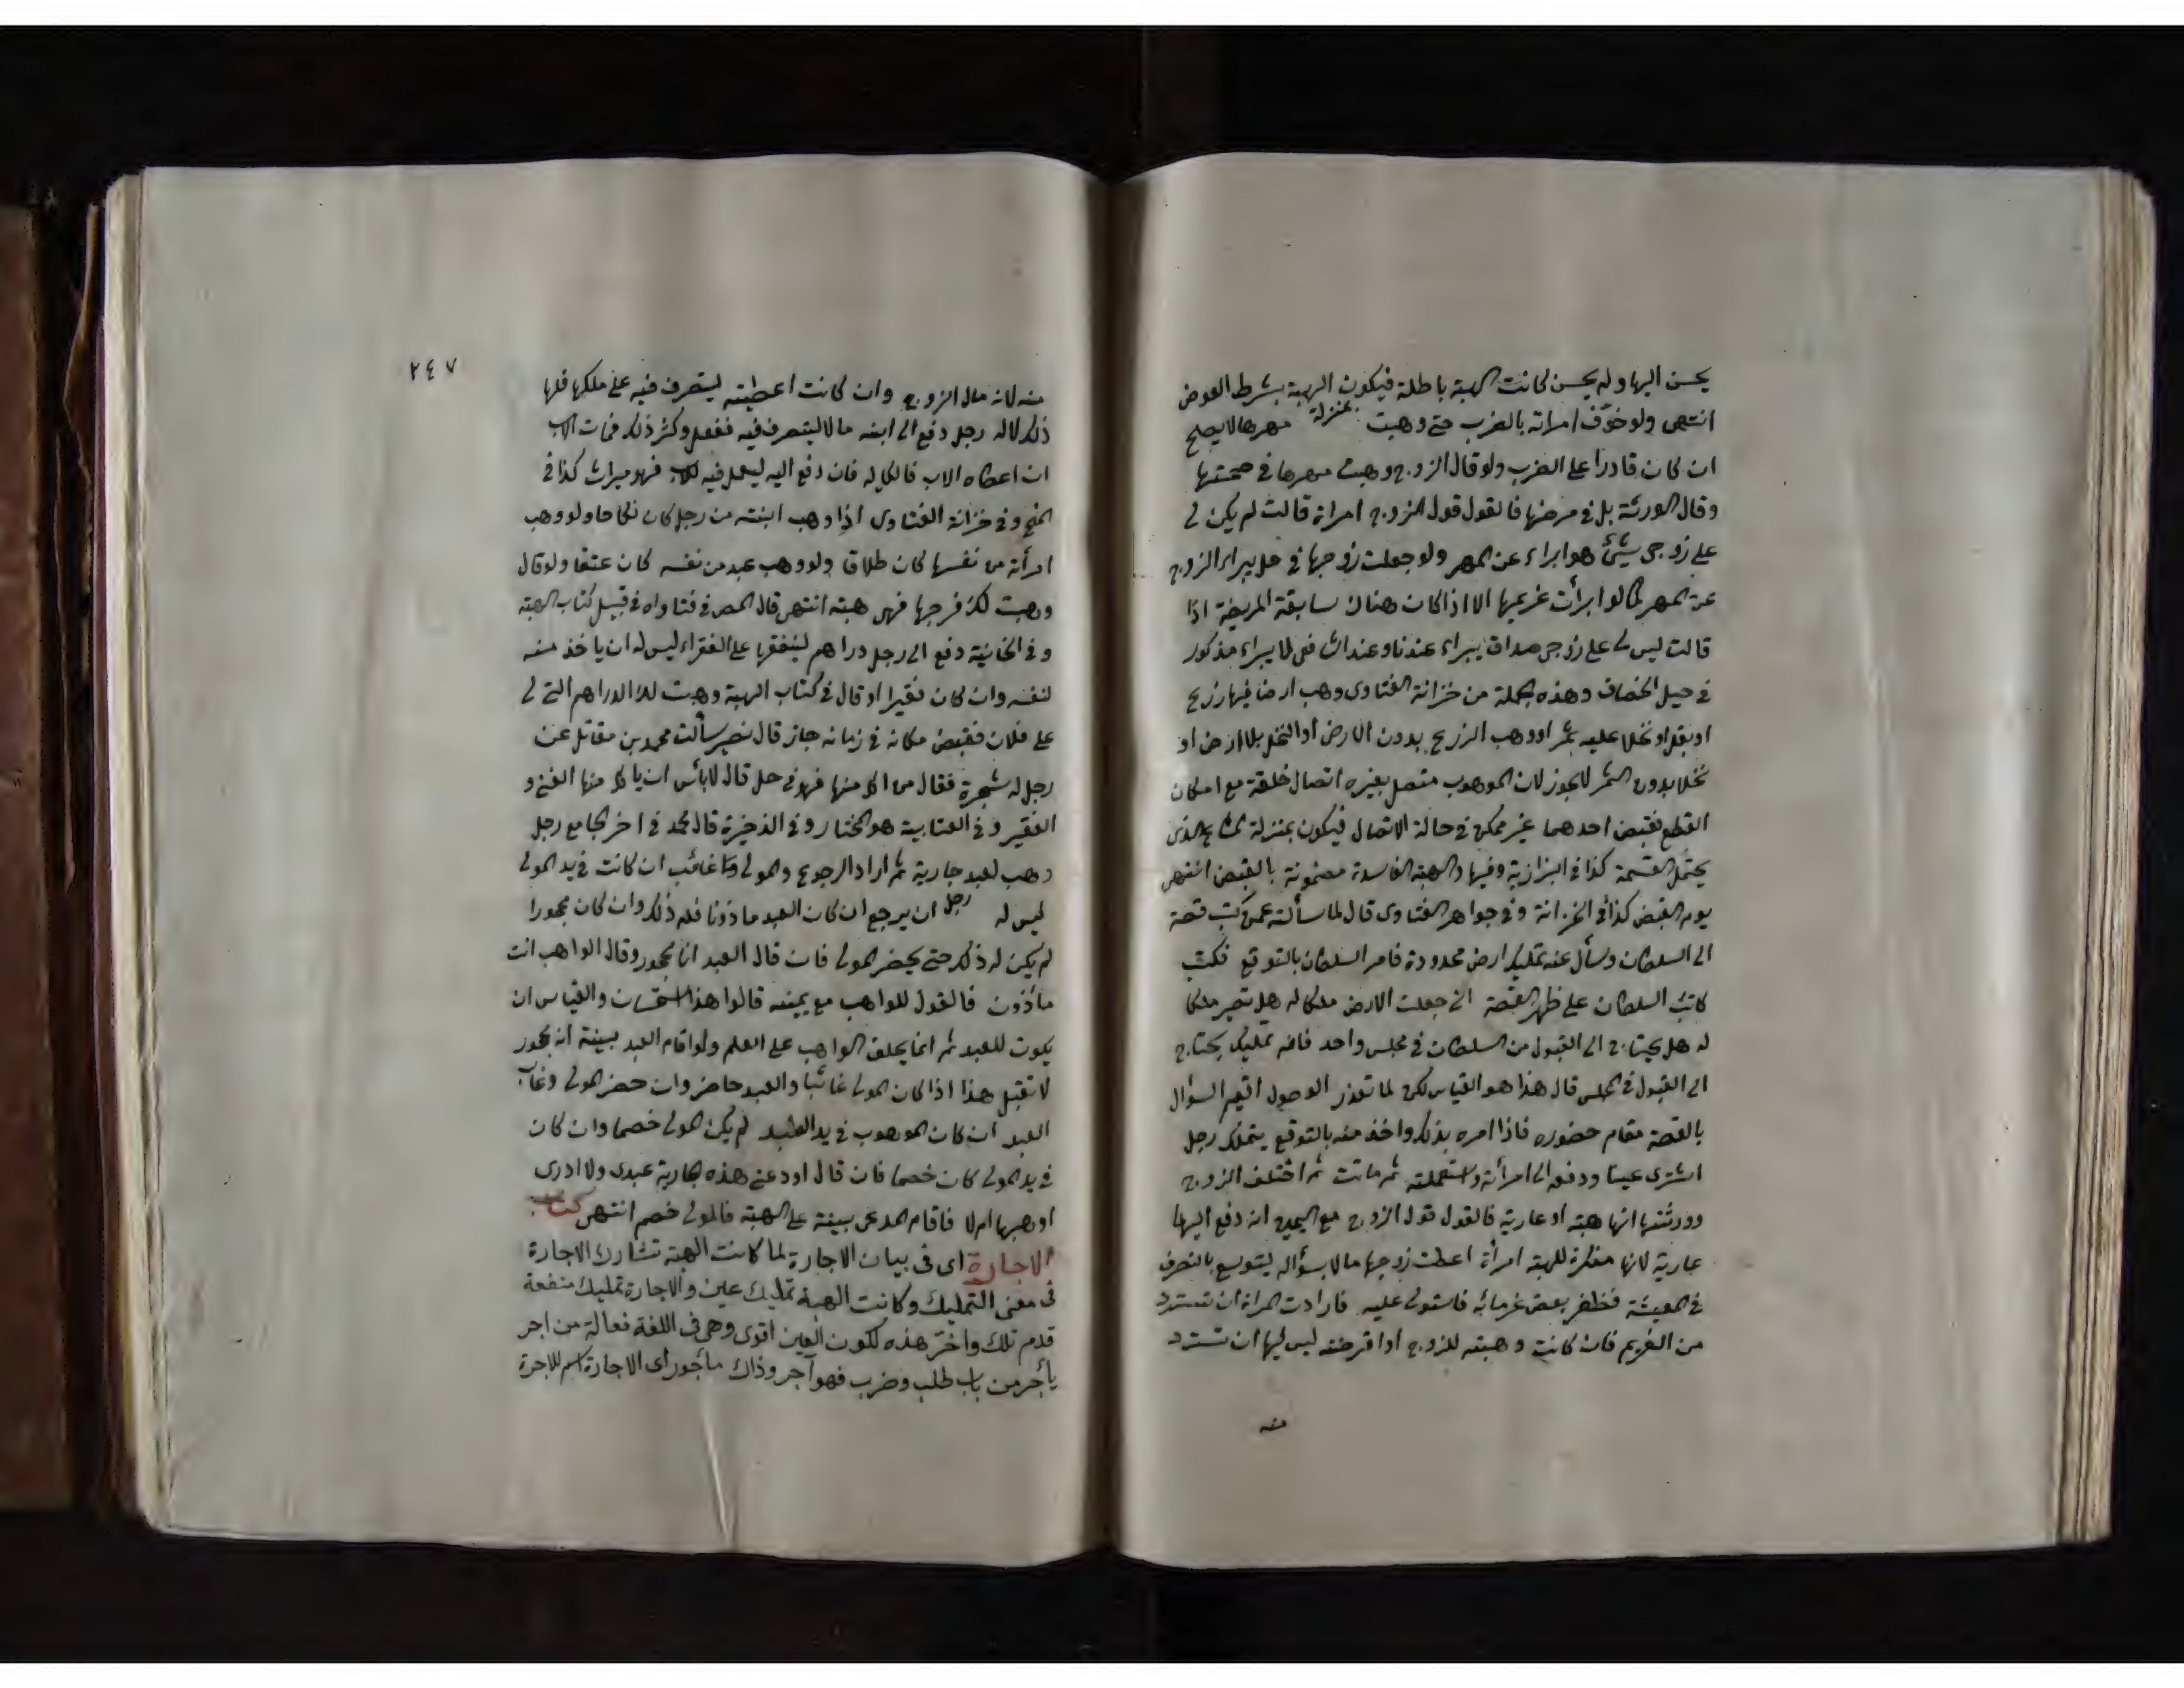 يحسن اليها ولم يحسن كانت الهبة باطلة فيكون الهبة بشرط العوض
انتهى ولو خوف امراته بالضرب حتى وهبت بمنزلة مهرها لا يصلح
ان كان قادرا على الضرب ولو قال الزوج وهبت مهرها في صحتها
وقال الورثة بل في مرضها فالقول قول الزوج امراة قالت لم يكن لي
على زوجي شيئ هو ابراء عن المهر ولو جعلت زوجها في حل يبراء الزوج
عن المهر كما لو ابرأت غريمها الا اذا كان هناك سابقة المريضة اذا
قالت ليس لي على زوجي صداق يبراء عندنا وعند الشافعي لا يبراء مذكور
في حيل الخصاف وهذه الجملة من خزانة الفتاوى وهب ارضا فيها زرع
او بقل او نخلا عليه ثمر او وهب الزرع بدون الارض او النخل بلا ارض او
نخلا بدون الثمر لا يجوز لان الموهوب متصل بغيره اتصال خلقة مع امكان
القطع فقبض احدهما غير ممكن في حالة الاتصال فيكون بمنزلة المشاع الذي
يحتمل القسمة كذا في البزازية وفيها والهبة الفاسدة مضمونة بالقبض انتهى
يوم القبض كذا في الخزانة وفي جواهر الفتاوى قال لما سألته عمن كتب قصة
الى السلطان وسأل عنه تمليك ارض محدودة فامر السلطان بالتوقيع فكتب
كاتب السلطان على ظهر القصة اني جعلت الارض ملكا له هل تصير ملكا
له هل يحتاج الى القبول من السلطان في مجلس واحد فانه تمليك يحتاج
الى القبول في المجلس قال هذا هو القياس لكن لما تعذر الوصول اقيم السؤال
بالقصة مقام حضوره فاذا امره بذلك واخذ منه بالتوقيع يتملك رجل
اشترى عينا ودفعه الى امرأته واستعملته ثم ماتت ثم اختلف الزوج
وورثتها انها هبة او عارية فالقول قول الزوج مع اليمين انه دفع اليها
عارية لانها منكرة للهبة امرأة اعطت زوجها مالا بسؤاله ليتوسع بالتصرف
في المعيشة فظفر بعض غرمائه فاستولى عليه فارادت المراة ان تسترد
من الغريم فان كانت وهبته للزوج او اقرضته ليس لها ان تسترد
منه
٢٤٧
منه لانه مال الزوج وان كانت اعطيته ليتصرف فيه على ملكها فلها
ذلك لا له رجل دفع الى ابنه مالا ليتصرف فيه ففعل وكثر ذلك فمات الاب
ان اعطاه الاب فالكل له فان دفع اليه ليعمل فيه للاب فهو ميراث كذا في
المنح وفي خزانة الفتاوى اذا وهب ابنته من رجل كان نكاحا ولو وهب
امرأته من نفسها كان طلاقا ولو وهب عبد من نفسه كان عتقا ولو قال
وهبت لك فرجها فهى هبة انتهى قال المص في فتاواه في قبيل كتاب الهبة
وفي الخانية دفع الى رجل دراهم لينفقها على الفقراء ليس له ان ياخذ منه
لنفسه وان كان فقيرا او قال في كتاب الهبة وهبت لك الدراهم التي لي
على فلان فقبض مكانه في زمانه جاز قال نصير سألت محمد بن مقاتل عن
رجل له شجرة فقال من اكل منها فهو في حل قال لا بأس ان ياكل منها الغني و
الفقير وفي العتابية هو المختار وفي الذخيرة قال محمد في اخر الجامع رجل
وهب لعبد جارية ثم اراد الرجوع والمولى غائب ان كانت في يد المولى
ليس له رجل ان يرجع ان كان العبد ماذونا فله ذلك وان كان محجورا
لم يكن له ذلك حتى يحضر المولى فان قال العبد انا محجور وقال الواهب انت
مأذون فالقول للواهب مع يمينه قالوا هذا استحسان والقياس ان
يكون للعبد ثم انما يحلف الواهب على العلم ولو اقام العبد بينة انه محجور
لا تقبل هذا اذا كان المولى غائبا والعبد حاضر وان حضر المولى وغاب
العبد ان كان الموهوب في يد العبد لم يكن المولى خصما وان كان
في يد المولى كان خصما فان قال اودعني هذه الجارية عبدى ولا ادرى
اوهبها ام لا فاقام المدعى بينة على الهبة فالمولى خصم انتهى كتاب
الاجارة اى فى بيان الاجارة لما كانت الهبة تشارك الاجارة
فى معنى التمليك وكانت الهبة تمليك عين والاجارة تمليك منفعة
قدم تلك واخر هذه لكون العين اقوى وهى فى اللغة فعالة من اجر
يأجر من باب طلب وضرب فهو آجر وذاك مأجور اى الاجارة اسم للاجرة